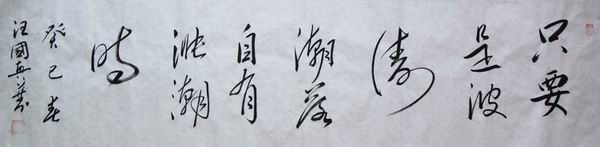 只要
是波
涛
潮落
自有
涨潮
时
癸巳春
汪國真书